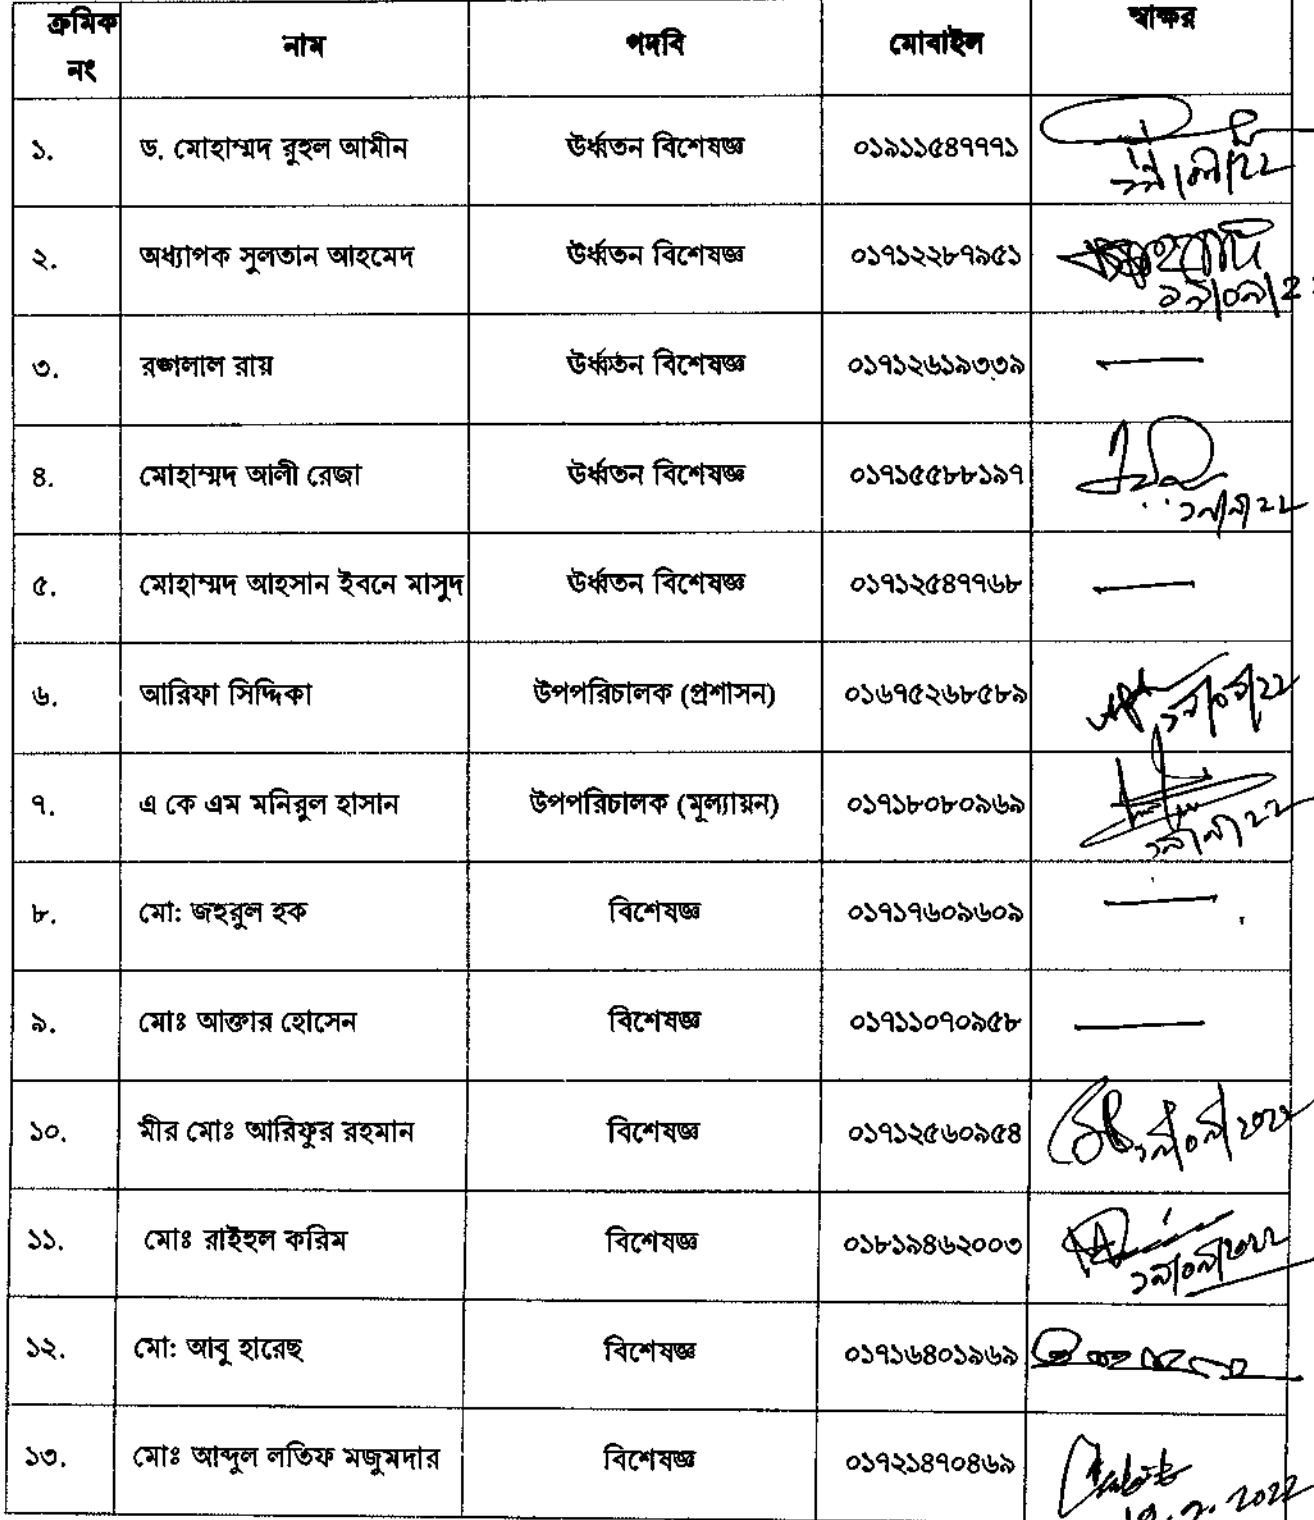 ক্রমিক নং নাম পদবি মোবাইল স্বাক্ষর
১. ড. মোহাম্মদ রুহুল আমীন উর্ধ্বতন বিশেষজ্ঞ ০১৯১১৫৪৭৭৭১
২. অধ্যাপক সুলতান আহমেদ উর্ধ্বতন বিশেষজ্ঞ ০১৭১২২৮৭৯৫১ ১৯/০৯/২
৩. রঙ্গলাল রায় উর্ধ্বতন বিশেষজ্ঞ ০১৭১২৬১৯৩৩৯ —
৪. মোহাম্মদ আলী রেজা উর্ধ্বতন বিশেষজ্ঞ ০১৭১৫৫৮৮১৯৭ ১৯/৯/২২
৫. মোহাম্মদ আহসান ইবনে মাসুদ উর্ধ্বতন বিশেষজ্ঞ ০১৭১২৫৪৭৭৬৮ —
৬. আরিফা সিদ্দিকা উপপরিচালক (প্রশাসন) ০১৬৭৫২৬৮৫৮৯ ১৯/০৯/২২
৭. এ কে এম মনিরুল হাসান উপপরিচালক (মূল্যায়ন) ০১৭১৮০৮০৯৬৯ ১৯/৯/২২
৮. মো: জহুরুল হক বিশেষজ্ঞ ০১৭১৭৬০৯৬০৯ —
৯. মোঃ আক্তার হোসেন বিশেষজ্ঞ ০১৭১১০৭০৯৫৮ —
১০. মীর মোঃ আরিফুর রহমান বিশেষজ্ঞ ০১৭১২৫৬০৯৫৪ ১৯/০৯/২০২২
১১. মোঃ রাইহুল করিম বিশেষজ্ঞ ০১৮১৯৪৬২০০৩ ১৯/০৯/২০২২
১২. মো: আবু হারেছ বিশেষজ্ঞ ০১৭১৬৪০১৯৬৯
১৩. মোঃ আব্দুল লতিফ মজুমদার বিশেষজ্ঞ ০১৭২১৪৭০৪৬৯